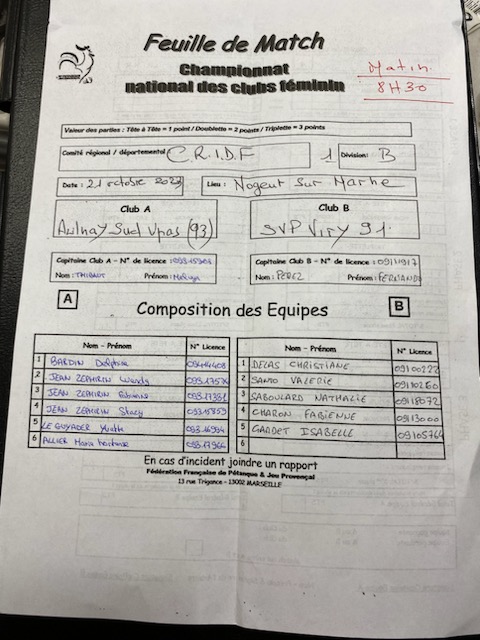 Feuille de Match
Championnat
national des clubs féminin
Matin
8H30
Valeur des parties : Tête à Tête = 1 point / Doublette = 2 points / Triplette = 3 points
Comité régional / départemental C.R.I.D.F 1 Division: B
Date : 21 octobre Lieu : Nogent Sur Marne
Club A
Aulnay Sud (93)
Club B
SVP Viry 91.
Capitaine Club A - N° de licence :
Nom : THIBAUT Prénom :
Capitaine Club B - N° de licence :
Nom : PEREZ Prénom : FERNANDO
A
Composition des Equipes
B
Nom - Prénom N° Licence
1 BARDIN Delphine
2 JEAN ZEPHIRIN Wendy
3 JEAN ZEPHIRIN
4 JEAN ZEPHIRIN Stacy
5 LE GUYADER
6 ALLIER Marie
Nom - Prénom N° Licence
1 DELAS CHRISTIANE 09100222
2 SANTO VALERIE
3 SABOULARD NATHALIE 09118072
4 CHARON FABIENNE 09113000
5 GARDET ISABELLE 09105764
6
En cas d'incident joindre un rapport
Fédération Française de Pétanque & Jeu Provençal
13 rue Trigance - 13002 MARSEILLE